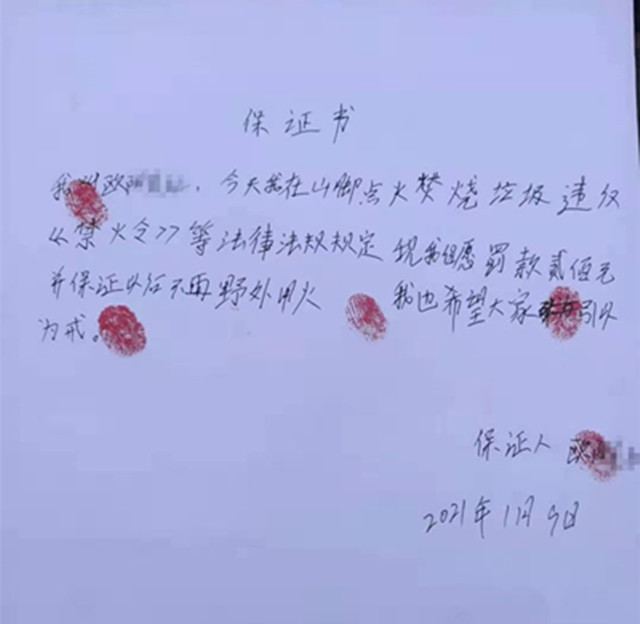 保证书
我叫欧，今天我在山脚点火焚烧垃圾违反
《禁火令》等法律法规规定现我自愿罚款贰佰元
并保证以后不再野外用火 我也希望大家引以
为戒。
保证人 欧
2021年1月9日